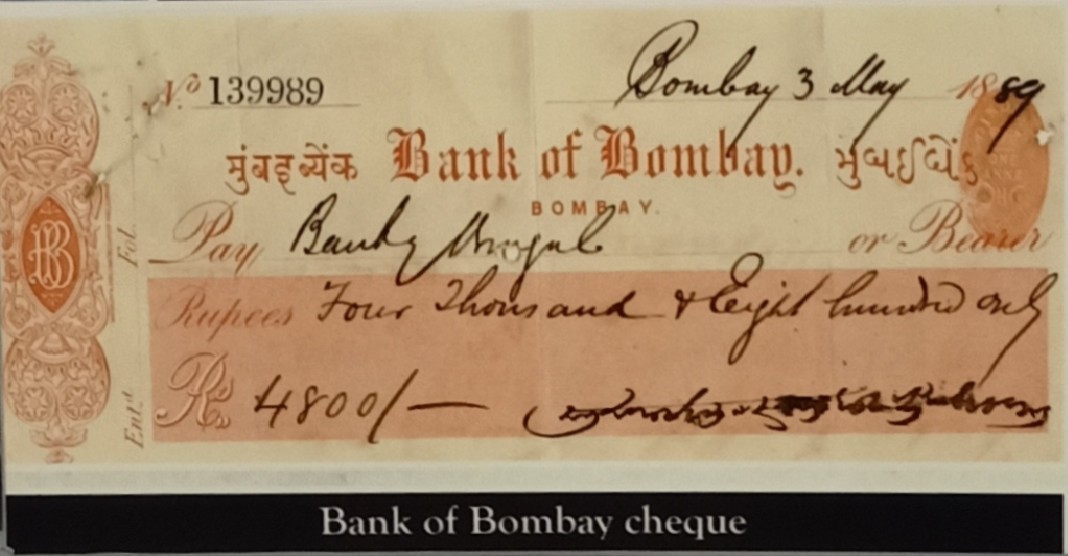 No 139989 Bombay 3 May 1889
मुंबइ ब्येंक Bank of Bombay. મુંબઈ બેંક
BOMBAY.
Pay Bank of Bengal or Bearer
Rupees Four Thousand & Eight hundred only
Rs. 4800/—
Fol.
Entd
BB
ONE
Bank of Bombay cheque